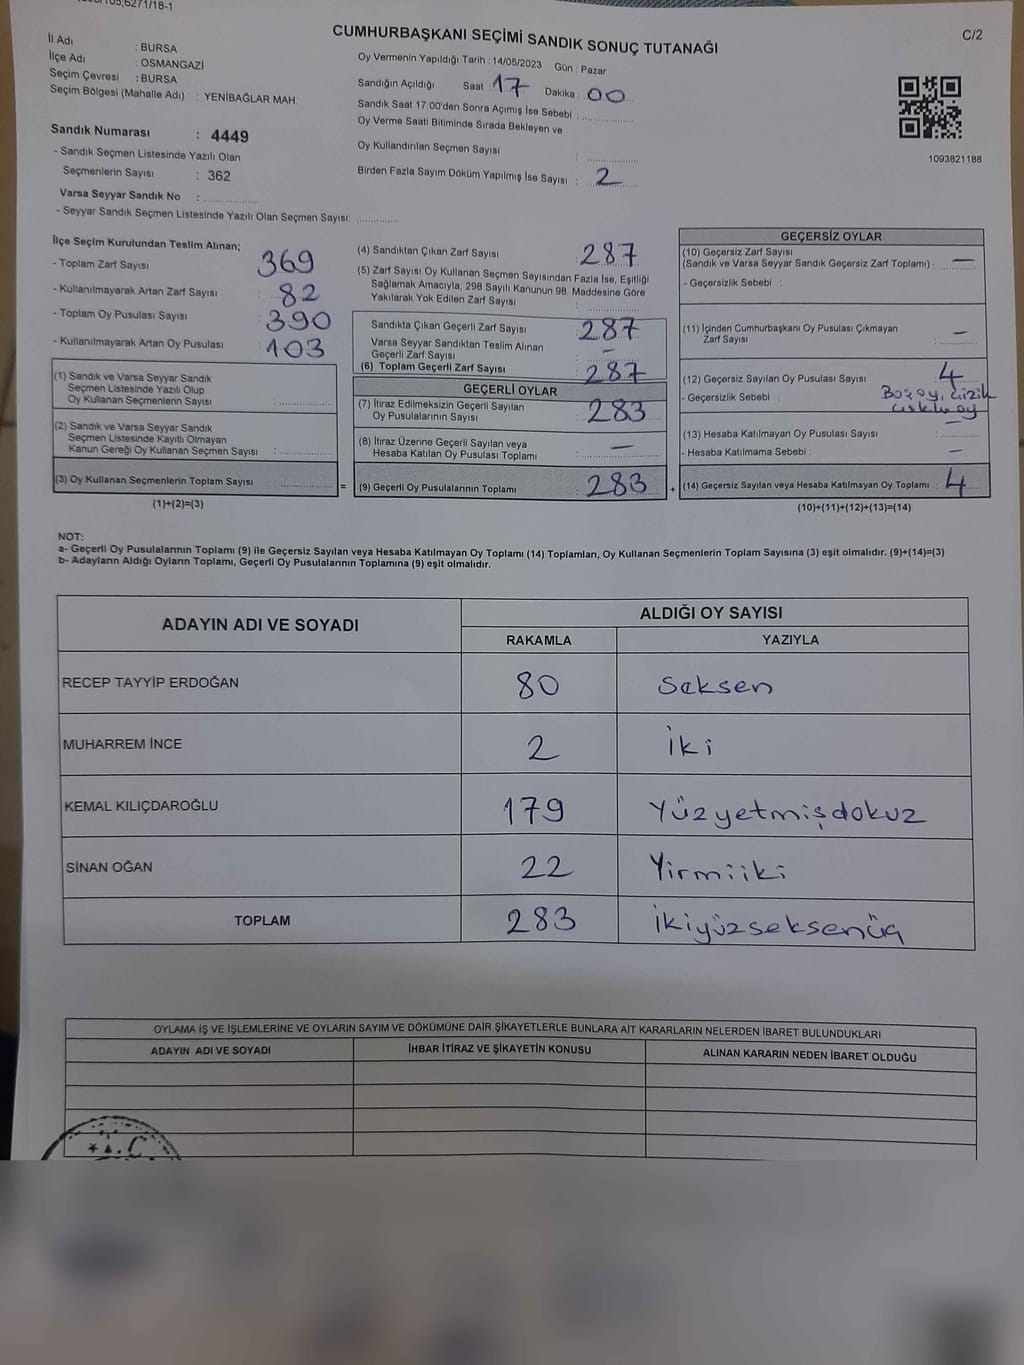 CUMHURBAŞKANI SEÇİMİ SANDIK SONUÇ TUTANAĞI
C/2
İl Adı : BURSA
İlçe Adı : OSMANGAZİ
Seçim Çevresi : BURSA
Seçim Bölgesi (Mahalle Adı) : YENİBAĞLAR MAH.
Sandık Numarası : 4449
- Sandık Seçmen Listesinde Yazılı Olan
Seçmenlerin Sayısı : 362
Varsa Seyyar Sandık No :
- Seyyar Sandık Seçmen Listesinde Yazılı Olan Seçmen Sayısı:
Oy Vermenin Yapıldığı Tarih : 14/05/2023 Gün : Pazar
Sandığın Açıldığı Saat : 17 Dakika : 00
Sandık Saat 17:00'den Sonra Açımış İse Sebebi :
Oy Verme Saati Bitiminde Sırada Bekleyen ve
Oy Kullandırılan Seçmen Sayısı :
Birden Fazla Sayım Döküm Yapılmış İse Sayısı : 2
1093821188
İlçe Seçim Kurulundan Teslim Alınan;
- Toplam Zarf Sayısı : 369
- Kullanılmayarak Artan Zarf Sayısı : 82
- Toplam Oy Pusulası Sayısı : 390
- Kullanılmayarak Artan Oy Pusulası : 103
(1) Sandık ve Varsa Seyyar Sandık
Seçmen Listesinde Yazılı Olup
Oy Kullanan Seçmenlerin Sayısı :
(2) Sandık ve Varsa Seyyar Sandık
Seçmen Listesinde Kayıtlı Olmayan
Kanun Gereği Oy Kullanan Seçmen Sayısı :
(3) Oy Kullanan Seçmenlerin Toplam Sayısı :
(1)+(2)=(3)
=
(4) Sandıktan Çıkan Zarf Sayısı : 287
(5) Zarf Sayısı Oy Kullanan Seçmen Sayısından Fazla İse, Eşitliği
Sağlamak Amacıyla; 298 Sayılı Kanunun 98. Maddesine Göre
Yakılarak Yok Edilen Zarf Sayısı :
Sandıkta Çıkan Geçerli Zarf Sayısı : 287
Varsa Seyyar Sandıktan Teslim Alınan
Geçerli Zarf Sayısı : -
(6) Toplam Geçerli Zarf Sayısı : 287
GEÇERLİ OYLAR
(7) İtiraz Edilmeksizin Geçerli Sayılan
Oy Pusulalarının Sayısı : 283
(8) İtiraz Üzerine Geçerli Sayılan veya
Hesaba Katılan Oy Pusulası Toplamı : —
(9) Geçerli Oy Pusulalarının Toplamı : 283
+
GEÇERSİZ OYLAR
(10) Geçersiz Zarf Sayısı
(Sandık ve Varsa Seyyar Sandık Geçersiz Zarf Toplamı) : —
- Geçersizlik Sebebi :
(11) İçinden Cumhurbaşkanı Oy Pusulası Çıkmayan
Zarf Sayısı : —
(12) Geçersiz Sayılan Oy Pusulası Sayısı : 4
- Geçersizlik Sebebi : Boş oy,
oy
(13) Hesaba Katılmayan Oy Pusulası Sayısı : —
- Hesaba Katılmama Sebebi : —
(14) Geçersiz Sayılan veya Hesaba Katılmayan Oy Toplamı : 4
(10)+(11)+(12)+(13)=(14)
NOT:
a- Geçerli Oy Pusulalarının Toplamı (9) ile Geçersiz Sayılan veya Hesaba Katılmayan Oy Toplamı (14) Toplamları, Oy Kullanan Seçmenlerin Toplam Sayısına (3) eşit olmalıdır. (9)+(14)=(3)
b- Adayların Aldığı Oyların Toplamı, Geçerli Oy Pusulalarının Toplamına (9) eşit olmalıdır.
ADAYIN ADI VE SOYADI
ALDIĞI OY SAYISI
RAKAMLA YAZIYLA
RECEP TAYYİP ERDOĞAN 80 Seksen
MUHARREM İNCE 2 İki
KEMAL KILIÇDAROĞLU 179 Yüzyetmişdokuz
SİNAN OĞAN 22 Yirmiiki
TOPLAM 283 İkiyüzseksenüç
OYLAMA İŞ VE İŞLEMLERİNE VE OYLARIN SAYIM VE DÖKÜMÜNE DAİR ŞİKAYETLERLE BUNLARA AİT KARARLARIN NELERDEN İBARET BULUNDUKLARI
ADAYIN ADI VE SOYADI İHBAR İTİRAZ VE ŞİKAYETİN KONUSU ALINAN KARARIN NEDEN İBARET OLDUĞU
T.C.